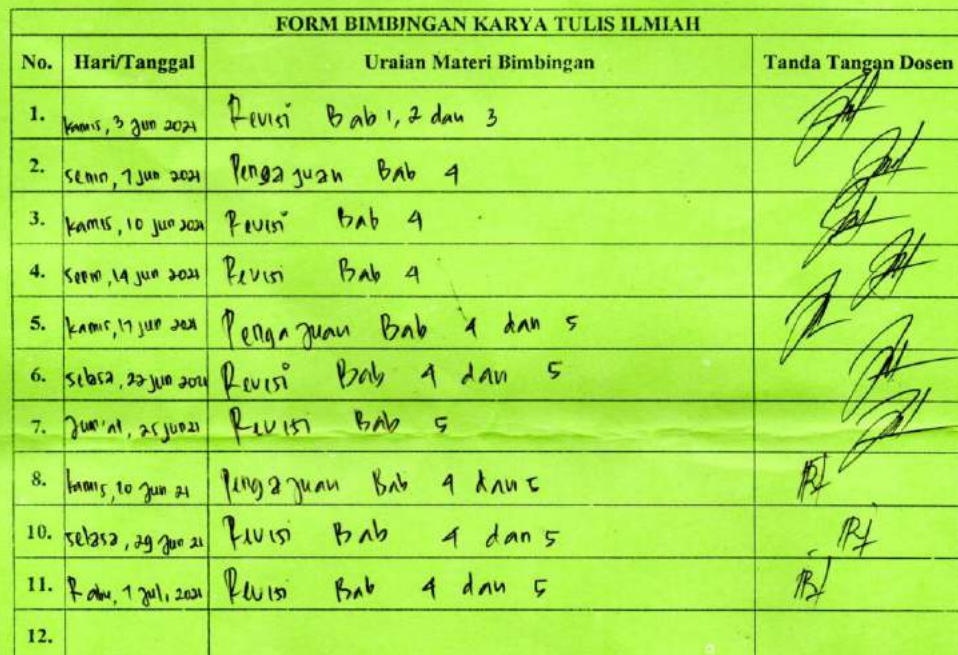 FORM BIMBINGAN KARYA TULIS ILMIAH
No. Hari/Tanggal Uraian Materi Bimbingan Tanda Tangan Dosen
1. Kamis, 3 Jun 2021 Revisi Bab 1, 2 dan 3
2. Senin, 7 Jun 2021 Pengajuan Bab 4
3. Kamis, 10 Jun 2021 Revisi Bab 4
4. Senin, 14 Jun 2021 Revisi Bab 4
5. Kamis, 17 Jun 2021 Pengajuan Bab 4 dan 5
6. Selasa, 22 Jun 2021 Revisi Bab 4 dan 5
7. Jum'at, 25 Jun 21 Revisi Bab 5
8. Kamis, 10 Jun 21 Pengajuan Bab 4 dan 5
10. Selasa, 29 Jun 21 Revisi Bab 4 dan 5
11. Rabu, 7 Jul, 2021 Revisi Bab 4 dan 5
12.